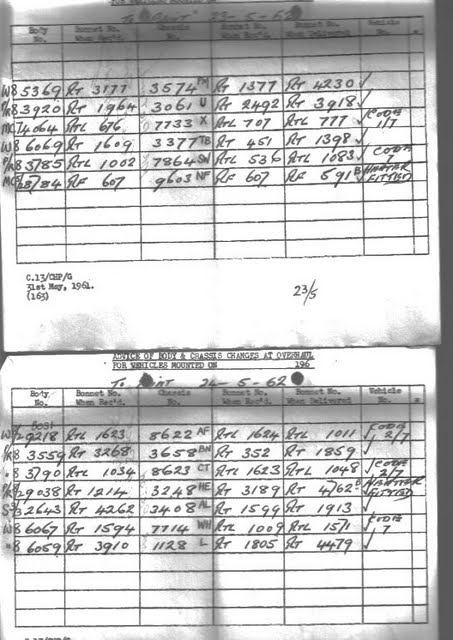 FOR VEHICLES MOUNTED ON
To Paint 23-5-62
Body No. Bonnet No. When Rec'd. Chassis No. Bonnet No. When Rec'd. Bonnet No. When Delivered Vehicle No.
W8 5369 RT 3177 3574 FM RT 1377 RT 4230 ✓
P/R8 3920 RT 1964 3061 U RT 2492 RT 3918 ✓
MC/4064 RTL 676 7733 X RTL 707 RTL 777 ✓ CODE 1/7
W8 6069 RT 1609 3377 TB RT 451 RT 1398 ✓
P/R8 3785 RTL 1002 7864 SW RTL 536 RTL 1083 ✓ CODE 7
MC/28/84 RF 607 9603 NF RF 607 RF 591 B HEATER FITTED
C.13/CHP/G
31st May, 1961.
(163)
23/5
ADVICE OF BODY & CHASSIS CHANGES AT OVERHAUL
FOR VEHICLES MOUNTED ON 196
To Paint 24-5-62
Body No. Bonnet No. When Rec'd. Chassis No. Bonnet No. When Rec'd. Bonnet No. When Delivered Vehicle No.
9218 RTL 1623 8622 AF RTL 1624 RTL 1011 ✓ CODE 2/7
8 3559 RT 3268 3658 BN RT 352 RT 1859 ✓
8 3790 RTL 1034 8623 CT RTL 1623 RTL 1048 ✓ CODE 2/7
29038 RT 1214 3248 HE RT 3189 RT 4762 B HEATER FITTED
2643 RT 4262 2408 AL RT 1599 RT 1913 ✓
W8 6067 RT 1594 7714 WH RTL 1009 RTL 1511 ✓ CODE 7
" 8 6059 RT 3910 1128 L RT 1805 RT 4479 ✓